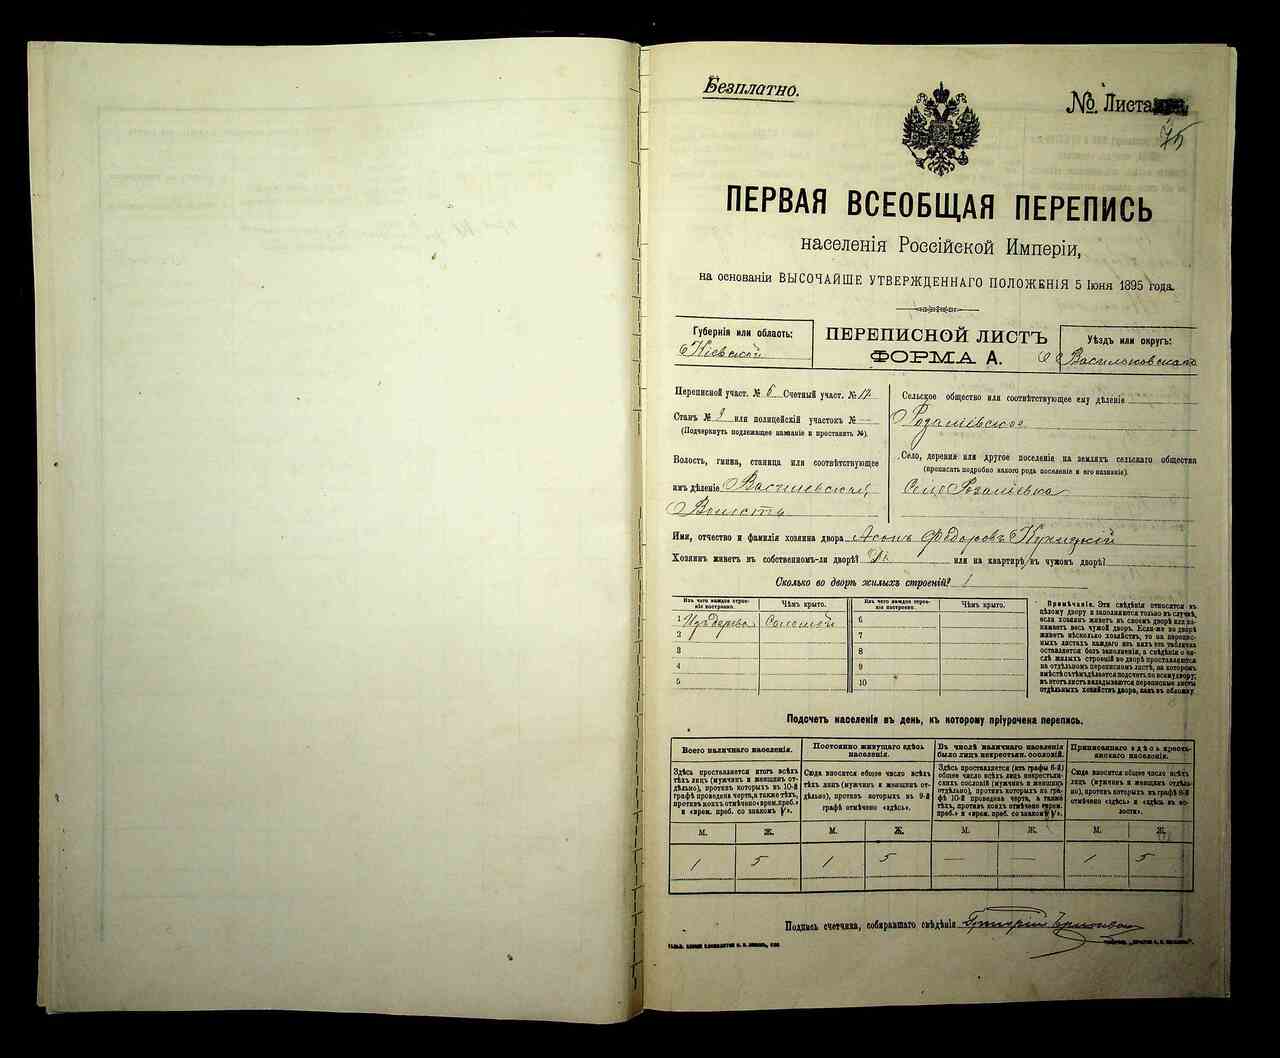 Безплатно.
№ Листа
75
ПЕРВАЯ ВСЕОБЩАЯ ПЕРЕПИСЬ
населенія Россійской Имперіи,
на основаніи ВЫСОЧАЙШЕ УТВЕРЖДЕННАГО ПОЛОЖЕНІЯ 5 Іюня 1895 года.
Губернія или область:
Кіевской
ПЕРЕПИСНОЙ ЛИСТЪ
ФОРМА А.
Уѣздъ или округъ:
Васильковскаго
Переписной участ. № 6 Счетный участ. № 12
Станъ № или полицейскій участокъ №
(Подчеркнуть подлежащее названіе и проставить №).
Волость, гмина, станица или соотвѣтствующее
имъ дѣленіе Василевская
Волость
Сельское общество или соотвѣтствующее ему дѣленіе
Розаліевское
Село, деревня или другое поселеніе на земляхъ сельскаго общества
(прописать подробно какого рода поселеніе и его названіе).
Село Розаліевка
Имя, отчество и фамилія хозяина двора Федоровъ
Хозяинъ живетъ въ собственномъ-ли дворѣ? Да или на квартирѣ въ чужомъ дворѣ?
Сколько во дворѣ жилыхъ строеній? 1
Изъ чего каждое строеніе построено.
Чѣмъ крыто.
Изъ чего каждое строеніе построено.
Чѣмъ крыто.
1 Изъ дерева Соломой 6
2 7
3 8
4 9
5 10
Примѣчаніе. Эти свѣдѣнія относятся къ
цѣлому двору и заполняются только въ случаѣ,
если хозяинъ живетъ въ своемъ дворѣ или занимаетъ весь чужой дворъ. Если-же во дворѣ
живетъ нѣсколько хозяйствъ, то на переписныхъ листахъ каждаго изъ нихъ эта табличка
оставляется безъ заполненія, а свѣдѣнія о числѣ жилыхъ строеній во дворѣ проставляются
на отдѣльномъ переписномъ листѣ, на которомъ
вмѣстѣ съ тѣмъ дѣлается подсчетъ по всему двору;
въ этотъ листъ вкладываются переписные листы
отдѣльныхъ хозяйствъ двора, какъ въ обложку.
Подсчетъ населенія въ день, къ которому пріурочена перепись.
Всего наличнаго населенія.
Здѣсь проставляется итогъ всѣхъ
тѣхъ лицъ (мужчинъ и женщинъ отдѣльно), противъ которыхъ въ 10-й
графѣ проведена черта, а также тѣхъ,
противъ коихъ отмѣчено «врем. преб.»
и «врем. преб. со знакомъ V».
Постоянно живущаго здѣсь
населенія.
Сюда вносится общее число всѣхъ
тѣхъ лицъ (мужчинъ и женщинъ отдѣльно), противъ которыхъ въ 9-й
графѣ отмѣчено «здѣсь».
Въ числѣ наличнаго населенія
было лицъ некрестьян. сословій.
Здѣсь проставляется (изъ графы 6-й)
общее число всѣхъ лицъ некрестьянскихъ сословій (мужчинъ и женщинъ
отдѣльно), противъ которыхъ въ графѣ 10-й проведена черта, а также
тѣхъ, противъ коихъ отмѣчено «врем.
преб.» и «врем. преб. со знакомъ V».
Приписаннаго здѣсь крестьянскаго населенія.
Сюда вносится общее число всѣхъ
лицъ (мужчинъ и женщинъ отдѣльно), противъ которыхъ въ графѣ 8-й
отмѣчено «здѣсь» и «здѣсь въ волости».
М. Ж. М. Ж. М. Ж. М. Ж.
1 5 1 5 — — 1 5
Подпись счетчика, собиравшаго свѣдѣнія Григорій